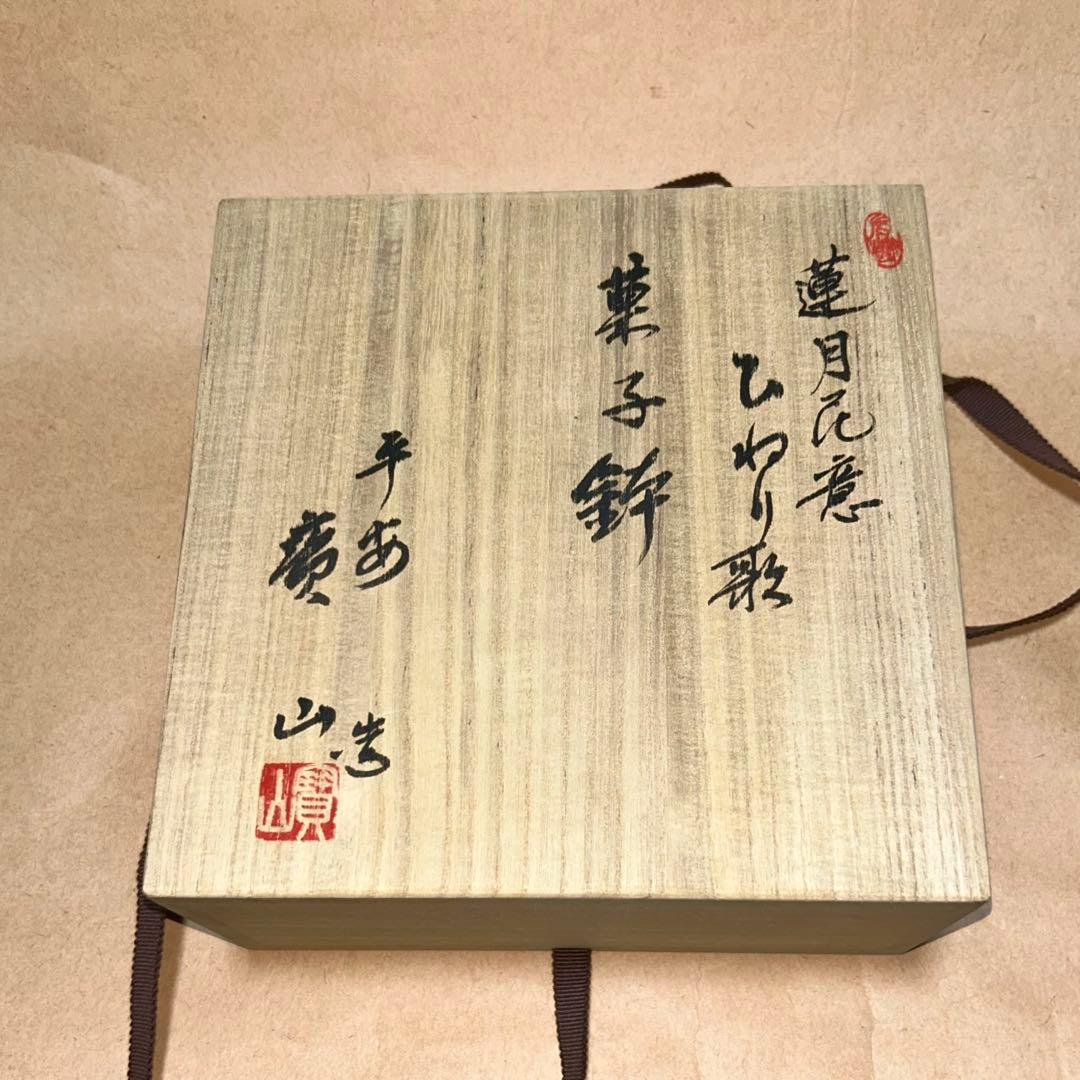 蓮月尼意
ひねり歌
菓子鉢
平安
寶山
造
寶山